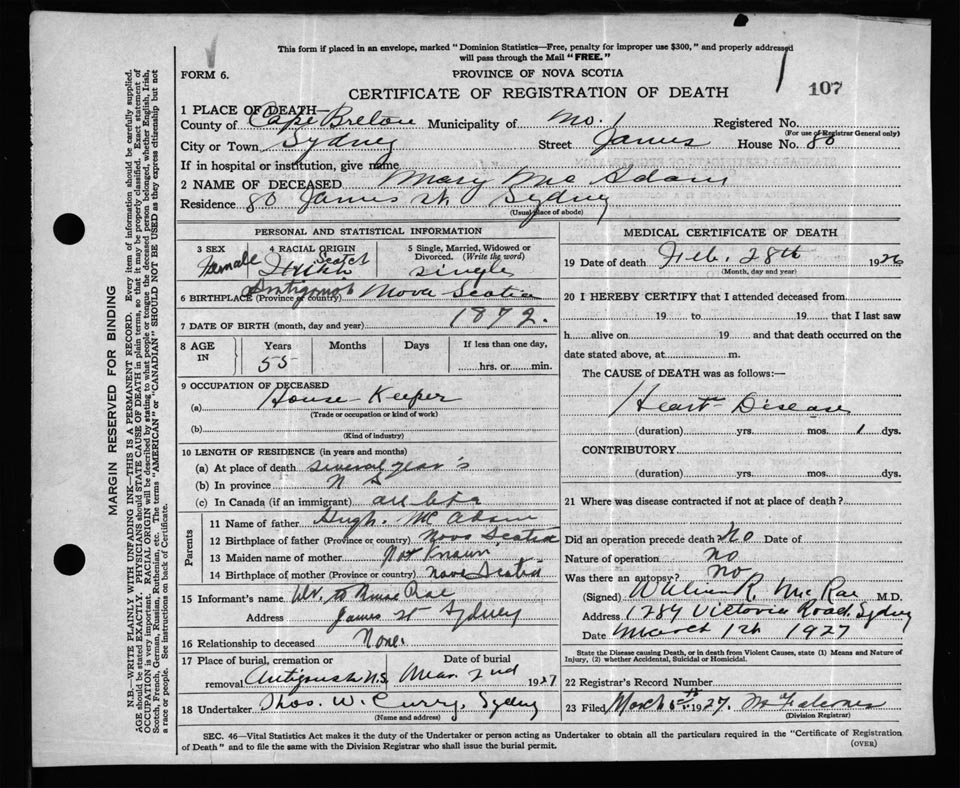 This form if placed in an envelope, marked "Dominion Statistics—Free, penalty for improper use $300," and properly addressed
will pass through the Mail "FREE."
FORM 6.
PROVINCE OF NOVA SCOTIA
CERTIFICATE OF REGISTRATION OF DEATH
107
1 PLACE OF DEATH—
County of Cape Breton Municipality of No. 1 Registered No.
(For use of Registrar General only)
City or Town Sydney Street James House No. 80
If in hospital or institution, give name
2 NAME OF DECEASED Mary Mc Adam
Residence 80 James St. Sydney
(Usual place of abode)
PERSONAL AND STATISTICAL INFORMATION
3 SEX 4 RACIAL ORIGIN 5 Single, Married, Widowed or
Divorced. (Write the word)
Female Scotch Single
6 BIRTHPLACE (Province or country) Antigonish Nova Scotia
7 DATE OF BIRTH (month, day and year) 1872.
8 AGE IN Years Months Days If less than one day,
55 hrs. or min.
9 OCCUPATION OF DECEASED
(a) House Keeper
(Trade or occupation or kind of work)
(b)
(Kind of industry)
10 LENGTH OF RESIDENCE (in years and months)
(a) At place of death several year's
(b) In province N S
(c) In Canada (if an immigrant)
Parents
11 Name of father Hugh. Mc Adam
12 Birthplace of father (Province or country) Nova Scotia
13 Maiden name of mother Not Known
14 Birthplace of mother (Province or country) Nova Scotia
15 Informant's name Rae
Address James St Sydney
16 Relationship to deceased None.
17 Place of burial, cremation or Date of burial
removal Antigonish N.S. Mar. 2nd 1927
18 Undertaker Thos. W. Curry, Sydney
(Name and address)
MEDICAL CERTIFICATE OF DEATH
19 Date of death Feb. 28th 1926
(Month, day and year)
20 I HEREBY CERTIFY that I attended deceased from
19 to 19 , that I last saw
h alive on 19 and that death occurred on the
date stated above, at m.
The CAUSE of DEATH was as follows:—
Heart Disease
(duration) yrs. mos. 1 dys.
CONTRIBUTORY
(duration) yrs. mos. dys.
21 Where was disease contracted if not at place of death?
Did an operation precede death No Date of
Nature of operation no
Was there an autopsy? no
(Signed) R. McRae M.D.
Address 1284 Victoria Road, Sydney
Date March 1st 1927
State the Disease causing Death, or in death from Violent Causes, state (1) Means and Nature of
Injury, (2) whether Accidental, Suicidal or Homicidal.
22 Registrar's Record Number
23 Filed March 1927.
(Division Registrar)
SEC. 46—Vital Statistics Act makes it the duty of the Undertaker or person acting as Undertaker to obtain all the particulars required in the "Certificate of Registration
of Death" and to file the same with the Division Registrar who shall issue the burial permit.
(OVER)
MARGIN RESERVED FOR BINDING
N.B.—WRITE PLAINLY WITH UNFADING INK—THIS IS A PERMANENT RECORD. Every item of information should be carefully supplied.
AGE should be stated EXACTLY. PHYSICIANS should STATE CAUSE OF DEATH in plain terms, so that it may be properly classified. Exact statement of
OCCUPATION is very important. RACIAL ORIGIN will be described by stating to what people or tongue the deceased person belonged, whether English, Irish,
Scotch, French, German, Russian, Ruthenian, etc. The terms "AMERICAN" or "CANADIAN" SHOULD NOT BE USED as they express citizenship but not
a race or people. See instructions on back of Certificate.